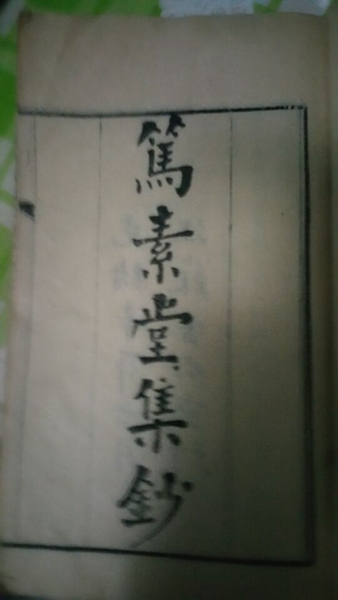 篤素堂集鈔